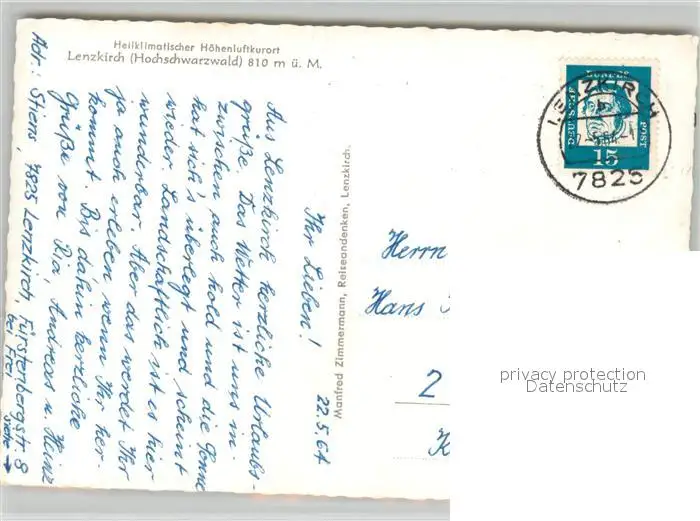 Heilklimatischer Höhenluftkurort
Lenzkirch (Hochschwarzwald) 810 m ü. M.
22.5.64
Ihr Lieben!
Aus Lenzkirch herzliche Urlaubs-
grüße. Das Wetter ist uns in-
zwischen auch hold und die Sonne
hat sich's überlegt und scheint
wieder. Landschaftlich ist es hier
wunderbar. Aber das werdet Ihr
ja auch erleben wenn Ihr her-
kommt. Bis dahin herzliche
Grüße von Ria, Andreas u. Heinz
Adr.: Stiens, 7825 Lenzkirch, Fürstenbergstr. 8
bei Frei
siehe →
Manfred Zimmermann, Reiseandenken, Lenzkirch.
DEUTSCHE
BUNDES
POST
15
LENZKIRCH
7825
Herrn
Hans
2
K
privacy protection
Datenschutz